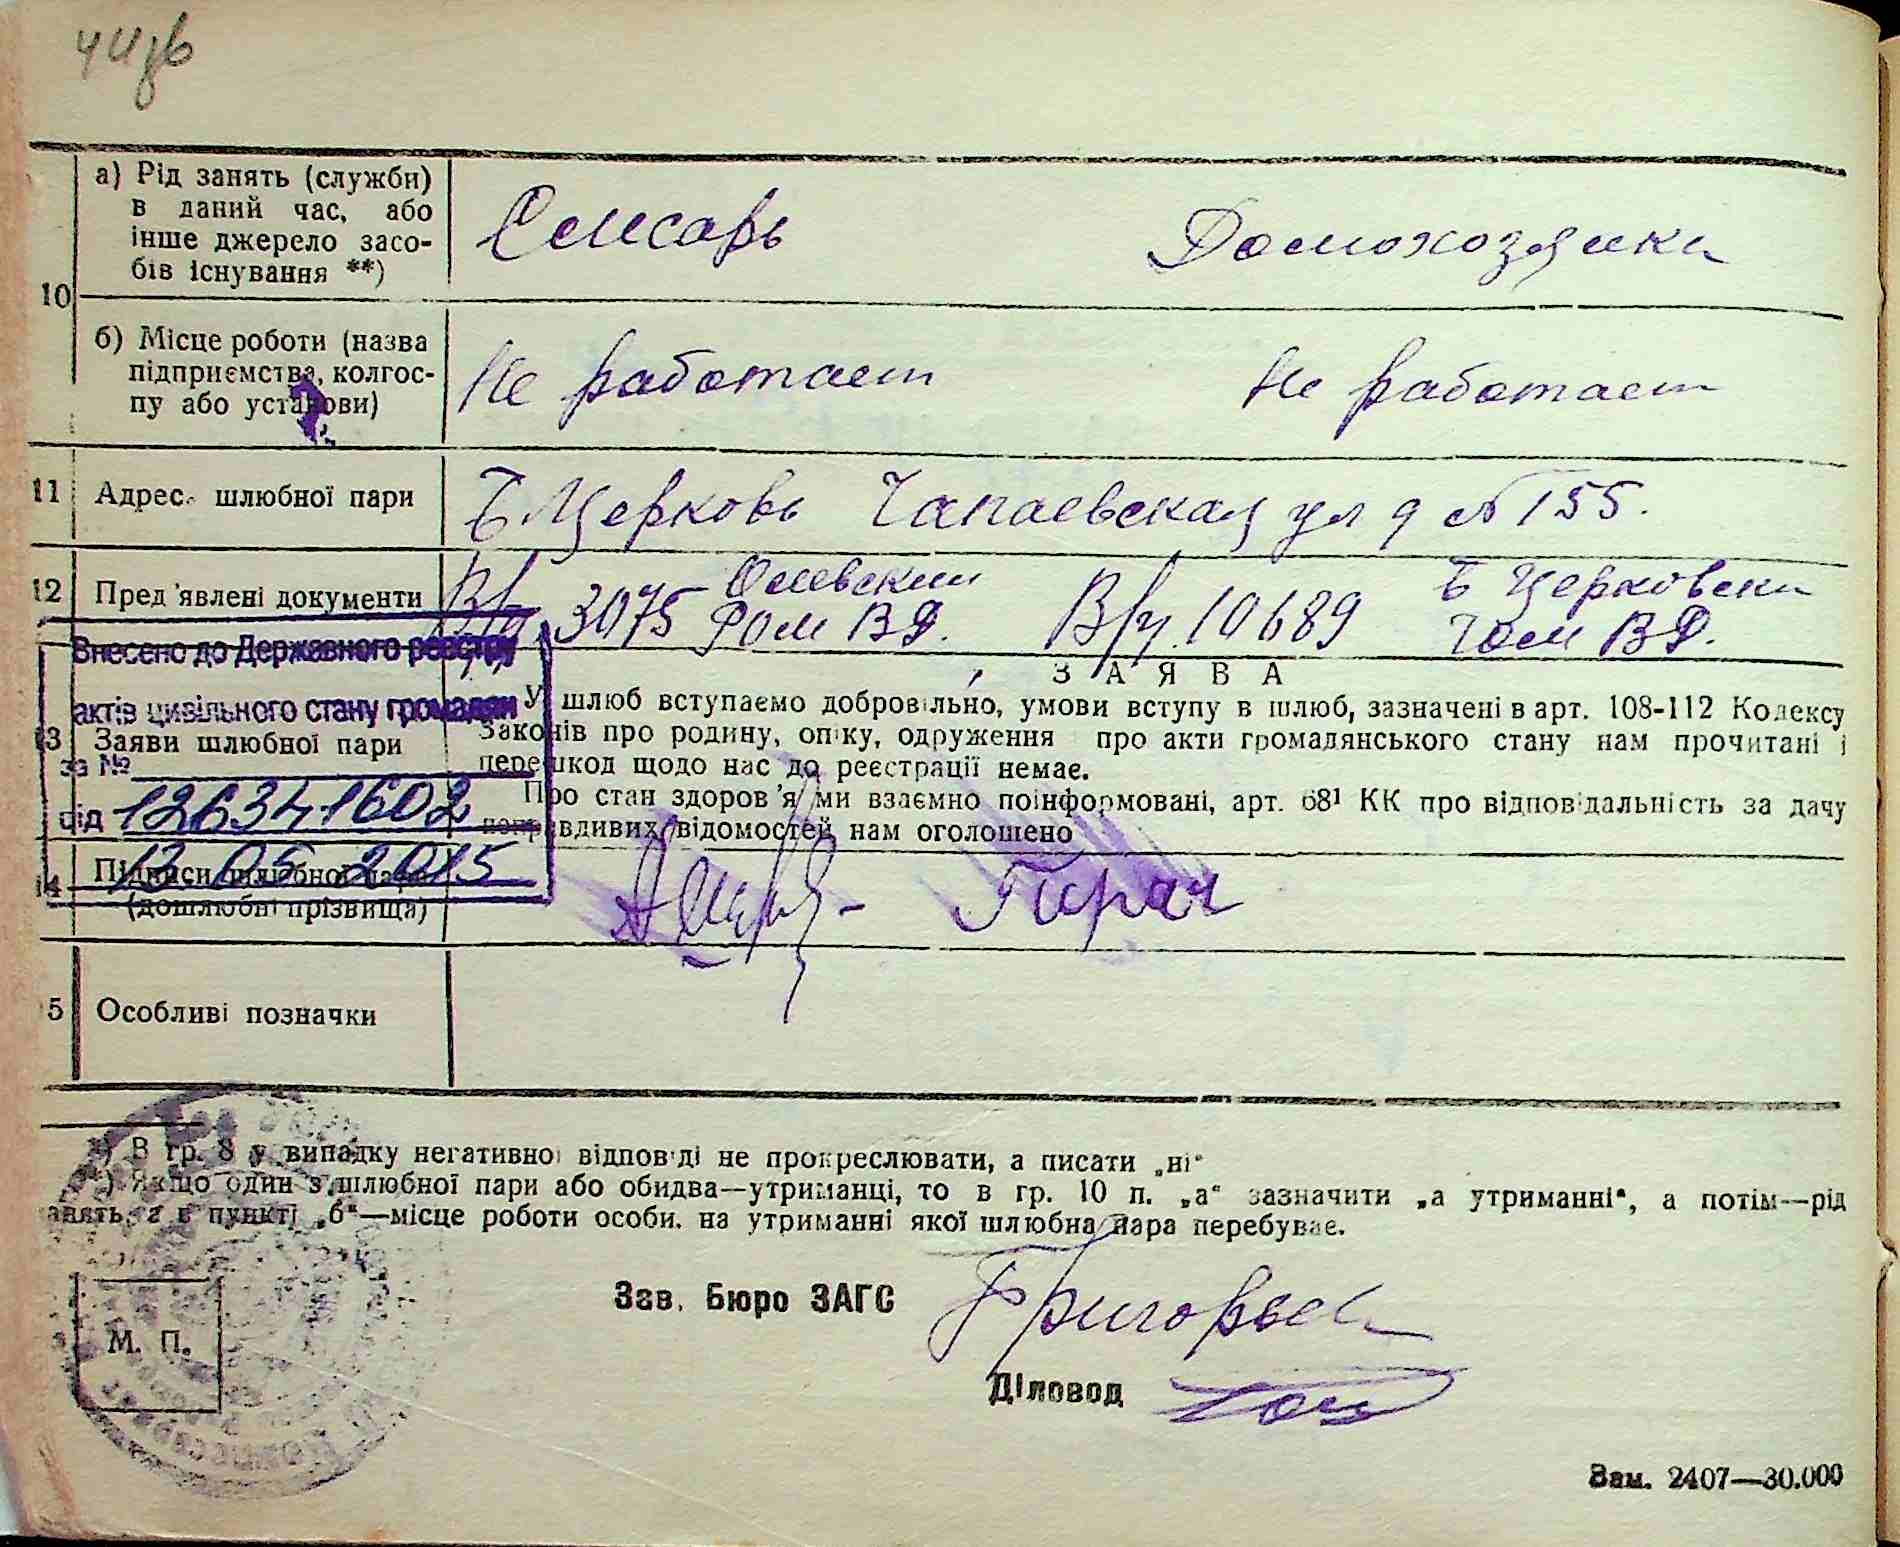 10
а) Рід занять (служби)
в даний час, або
інше джерело засо-
бів існування **)
Слисарь
Домохозяика
б) Місце роботи (назва
підприємства, колгос-
пу або установи)
Не работает
Не работает
11 Адрес шлюбної пари
Б Церковь Чапаевская ул д № 155.
12 Пред'явлені документи
Вр. 3075 Олевский
РОМ ВД.
Вр. 10689 Б Церковски
ГОМ ВД.
ЗАЯВА
У шлюб вступаємо добровільно, умови вступу в шлюб, зазначені в арт. 108-112 Кодексу
Законів про родину, опіку, одруження про акти громадянського стану нам прочитані і
перешкод щодо нас до реєстрації немає.
Про стан здоров'я ми взаємно поінформовані, арт. 68¹ КК про відповідальність за дачу
неправдивих відомостей нам оголошено
13 Заяви шлюбної пари
Внесено до Державного реєстру
актів цивільного стану громадян
за №
від 126341602
13 05 2015
14 Підписи шлюбної пари
(дошлюбні прізвища)
Гирач
5 Особливі позначки
*) В гр. 8 у випадку негативної відповіді не прокреслювати, а писати „ні“
) Якщо один з шлюбної пари або обидва—утриманці, то в гр. 10 п. „а“ зазначити „а утриманні“, а потім—рід
анять, а в пункті „б“—місце роботи особи, на утриманні якої шлюбна пара перебуває.
М. П.
Зав. Бюро ЗАГС Григорьев
Діловод
Зам. 2407—30.000